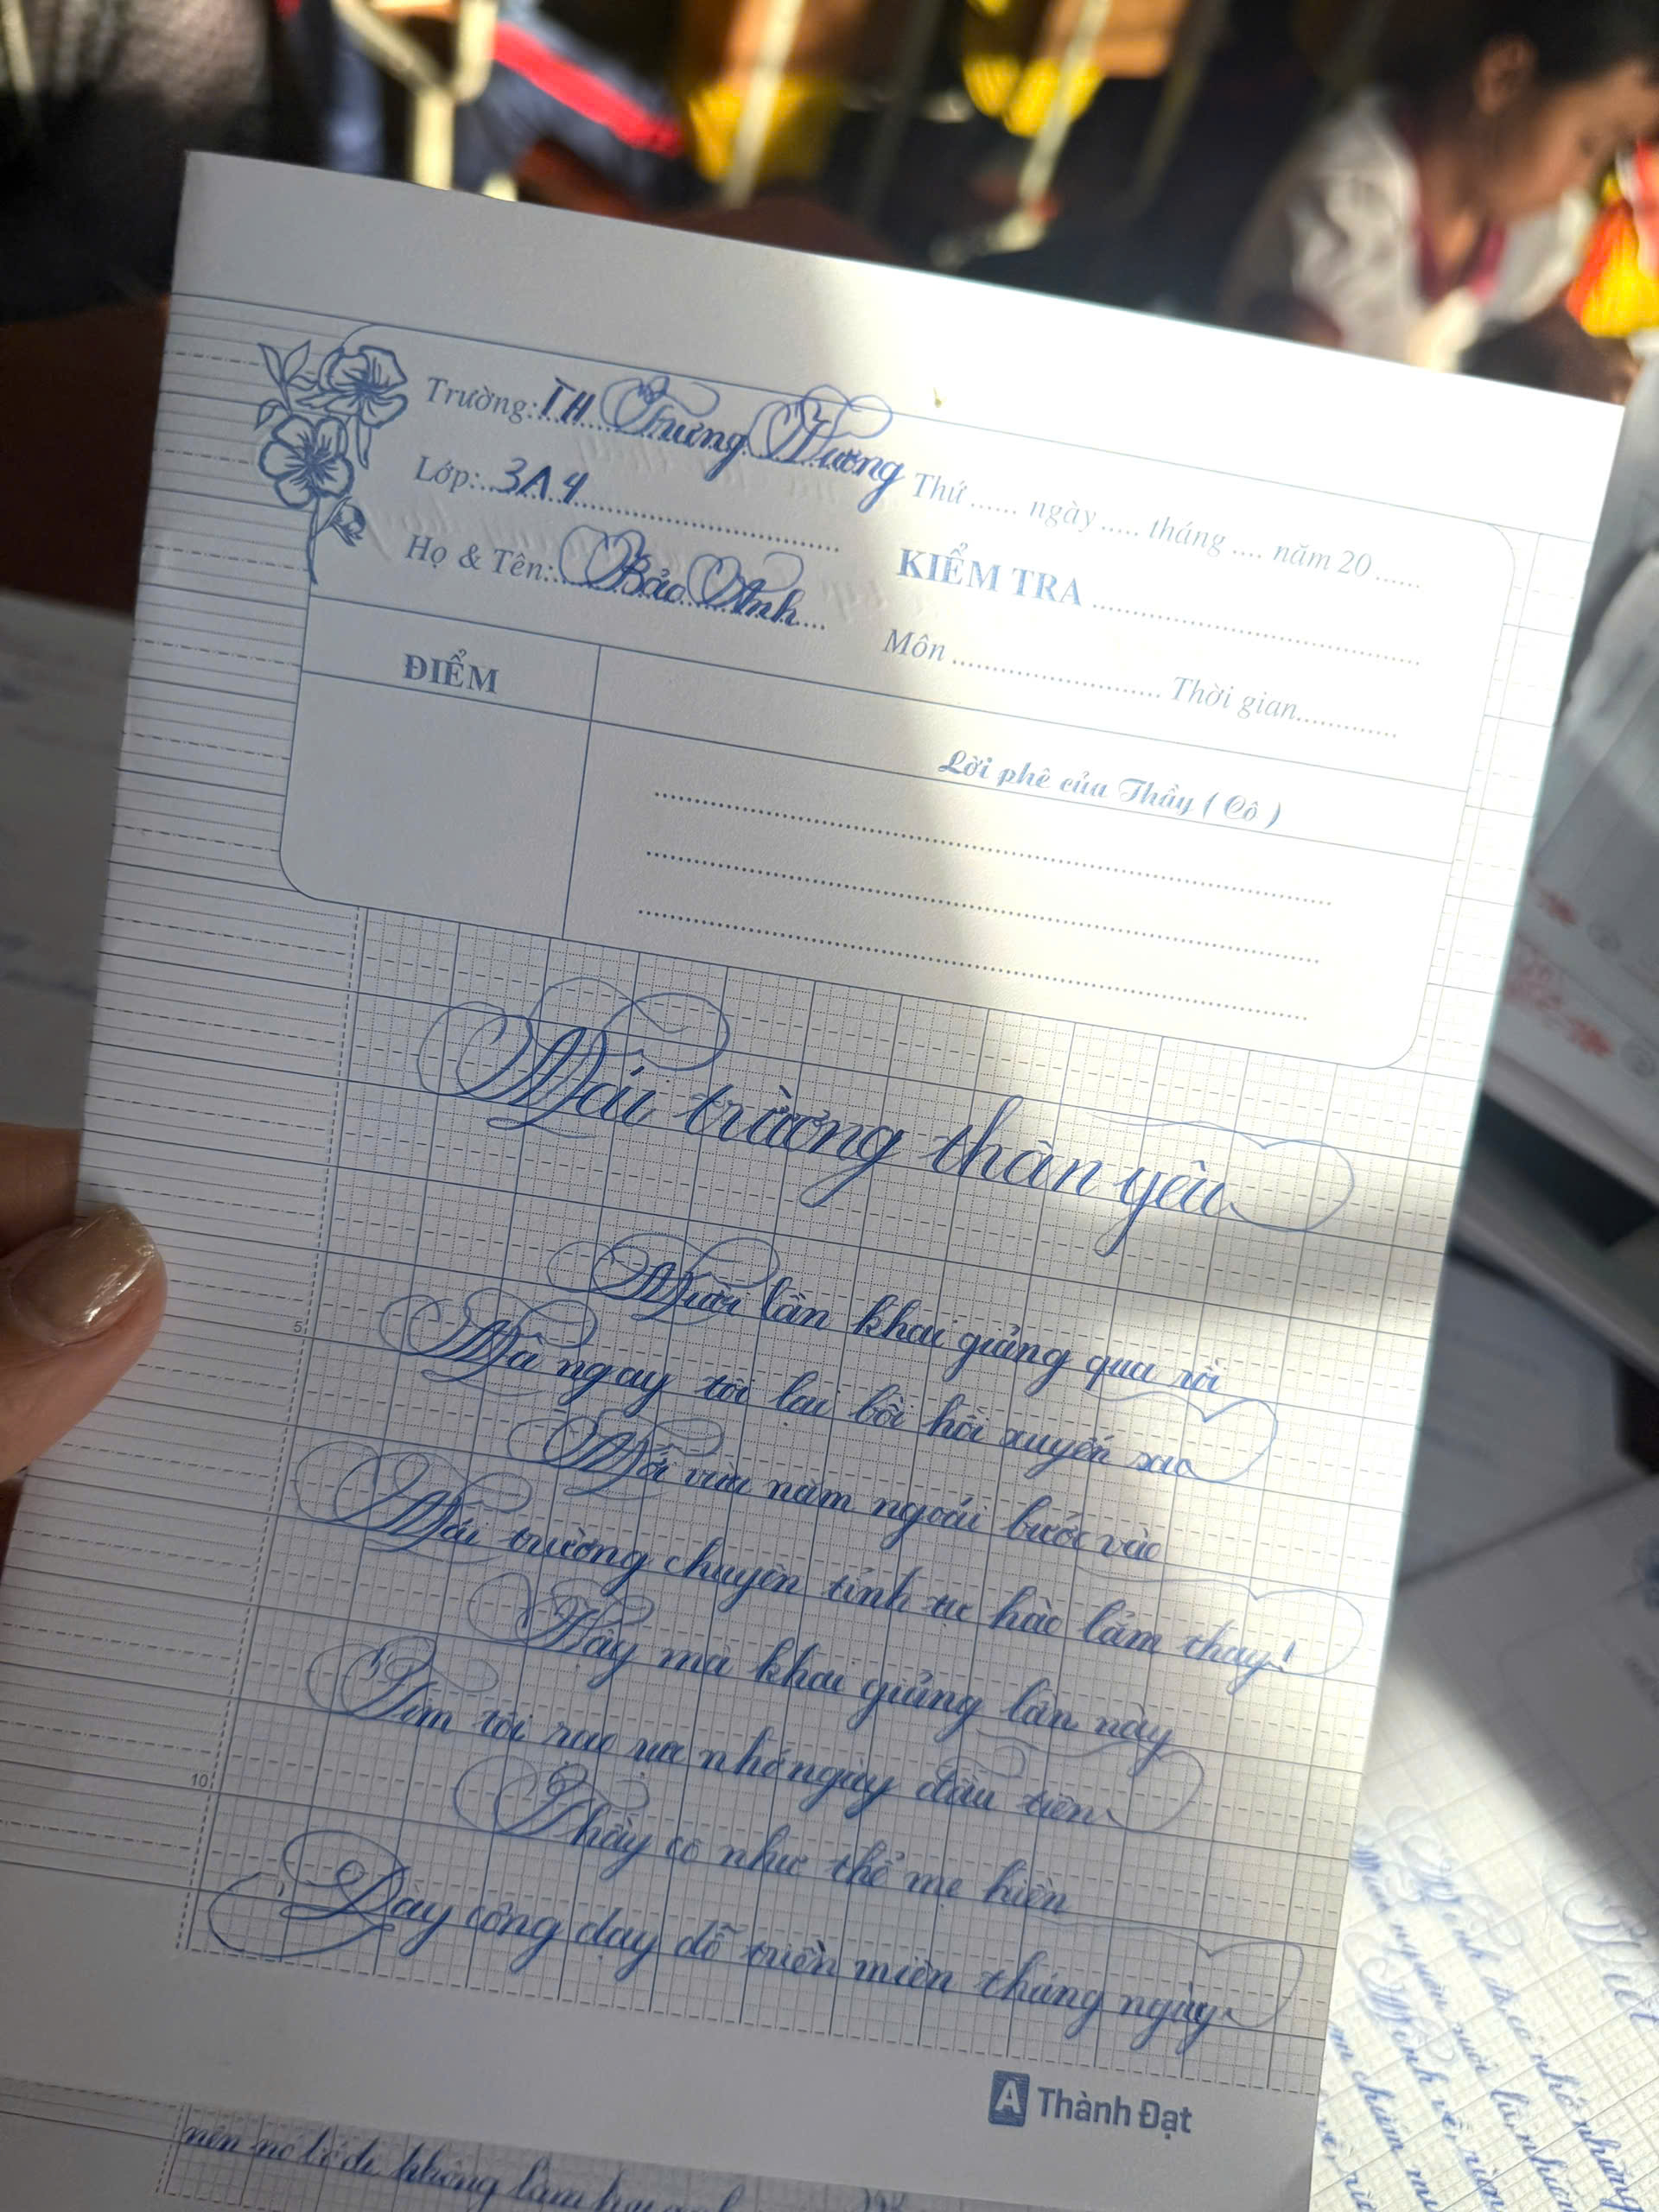 Trường: TH Trưng Vương
Thứ ...... ngày ..... tháng .... năm 20 ......
Lớp: 3A4
KIỂM TRA
Họ & Tên: Bảo Anh
Môn ........................ Thời gian............
ĐIỂM
Lời phê của Thầy ( Cô )
Mái trường thân yêu
Mười lần khai giảng qua rồi
Mà ngay tôi lại bồi hồi xuyến sao
Mới vừa năm ngoái bước vào
Mái trường chuyên tỉnh tự hào lắm thay!
Vậy mà khai giảng lần này
Tim tôi rạo rực nhớ ngày đầu tiên
Thầy cô như thể mẹ hiền
Dày công dạy dỗ triền miên tháng ngày
5
10
A Thành Đạt
nên nó bỏ đi không làm